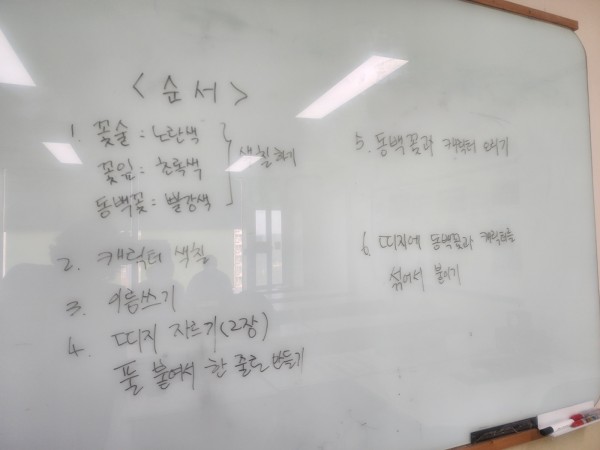 <순서>
1. 꽃술 : 노란색
꽃잎 : 초록색
동백꽃 : 빨강색
색칠하기
2. 캐릭터 색칠
3. 이름쓰기
4. 띠지 자르기(2장)
풀 붙여서 한 줄로 만들기
5. 동백꽃과 캐릭터 오리기
6. 띠지에 동백꽃과 캐릭터를
섞어서 붙이기